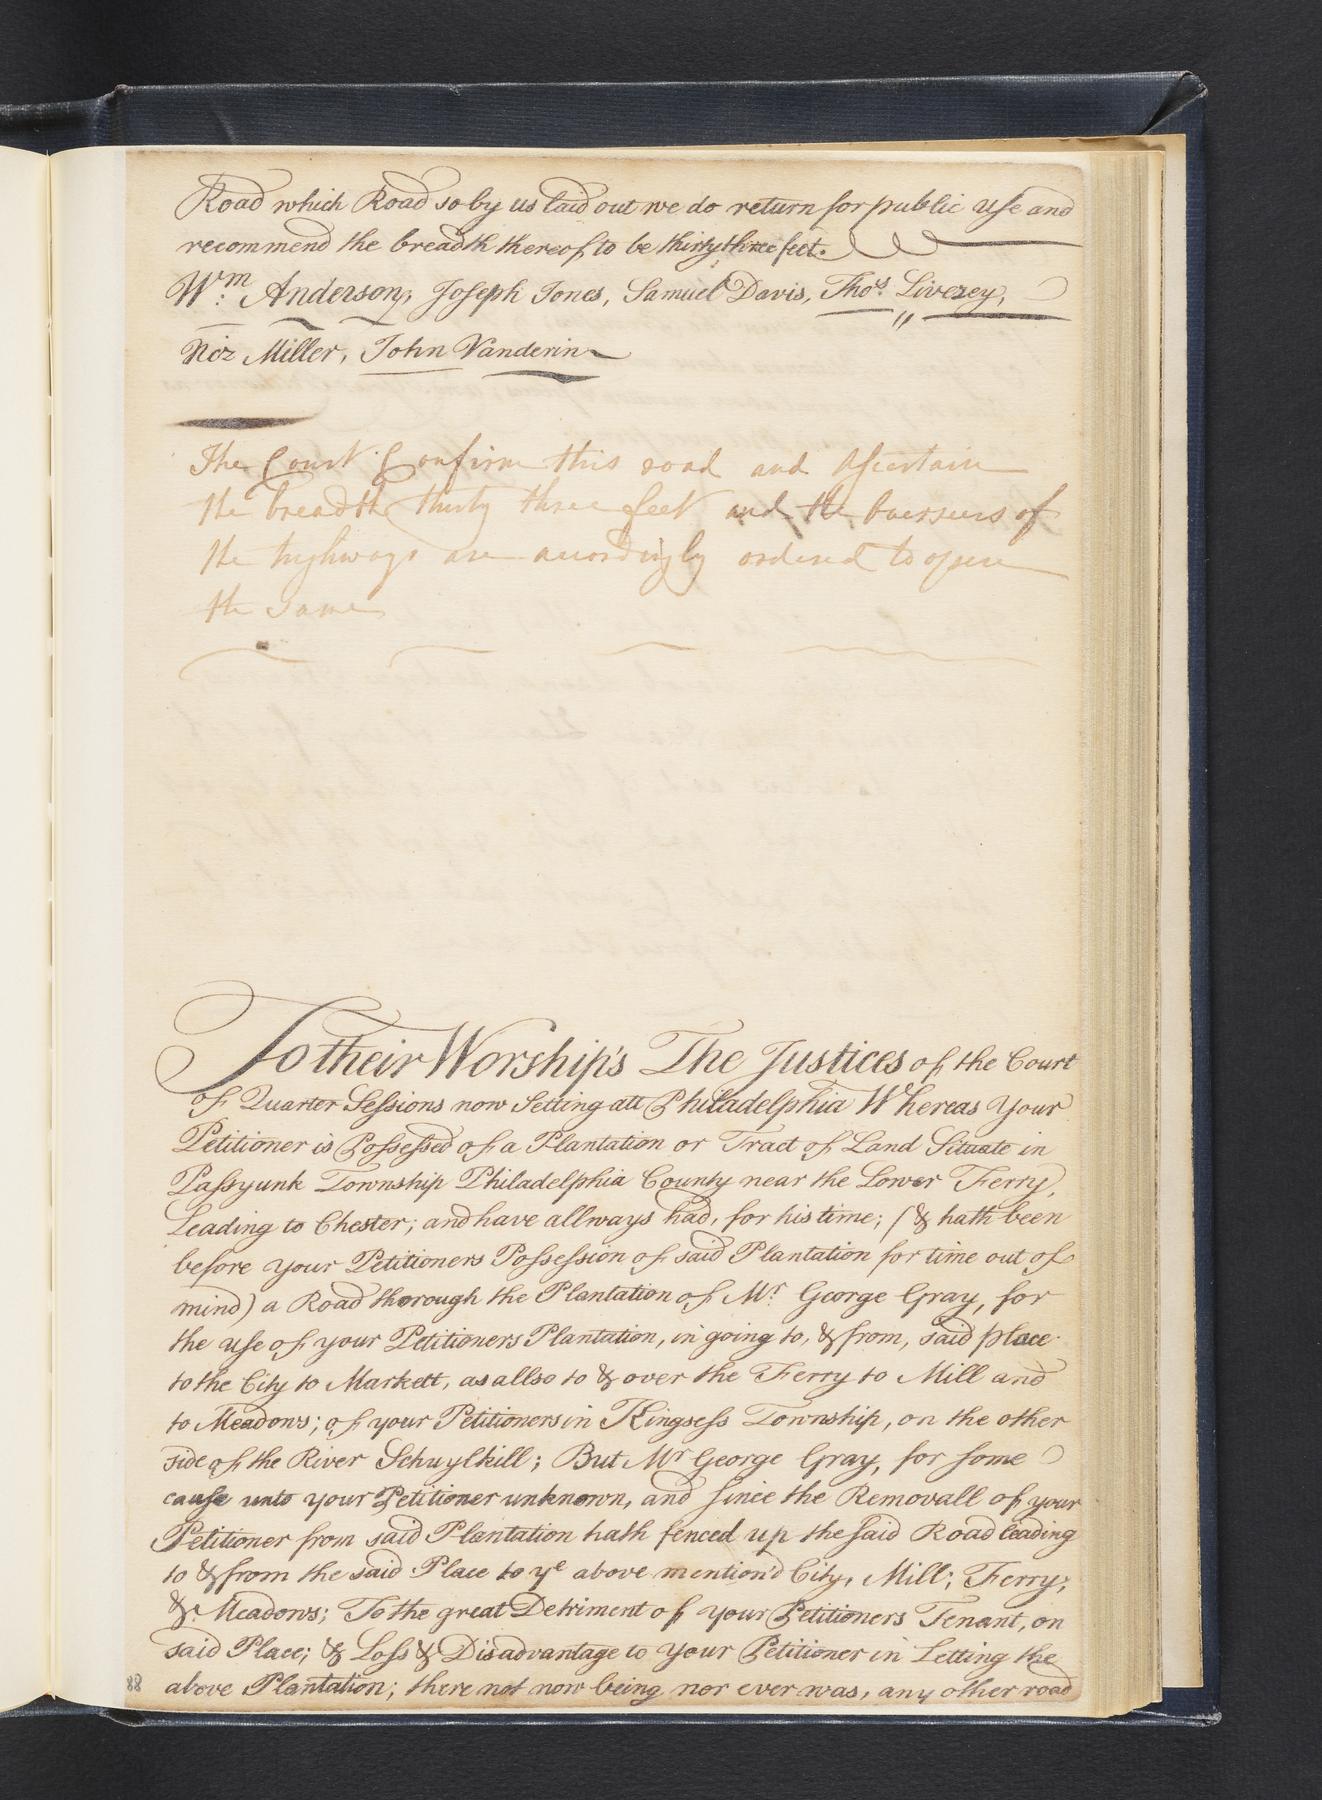 Road which Road so by us laid out we do return for public Use and
recommend the breadth thereof to be thirty three feet.
Wm: Anderson, Joseph Jones, Samuel Davis, Thos. Livezey,
Nicz Miller, John Vanderin
The Court Confirm this road and Ascertain
the breadth thirty three feet and the Overseers of
the highways are accordingly ordered to open
the Same
To their Worship's The Justices of the Court
of Quarter Sessions now Setting att Philadelphia Whereas Your
Petitioner is Possessed of a Plantation or Tract of Land Situate in
Passyunk Township Philadelphia County near the Lower Ferry,
Leading to Chester; and have allways had, for his time; (& hath been
before your Petitioners Possession of said Plantation for time out of
mind) a Road thorough the Plantation of Mr. George Gray, for
the use of your Petitioners Plantation, in going to, & from, said place
to the City to Markett, as allso to & over the Ferry to Mill and
to Meadows; of your Petitioners in Kingsess Township, on the other
side of the River Schuylkill; But Mr George Gray, for some
cause unto your Petitioner unknown, and since the Removall of your
Petitioner from said Plantation hath fenced up the said Road leading
to & from the said Place to ye above mention'd City, Mill; Ferry;
& Meadows; To the great Detriment of your Petitioners Tenant, on
said Place; & Loss & Disadvantage to Your Petitioner in Letting the
above Plantation; there not now being nor ever was, any other road
88